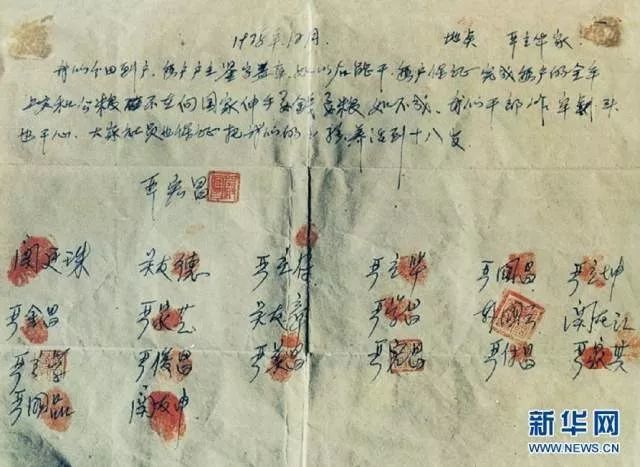 1978年12月. 地点 严立华家
我们分田到户,每户户主签字盖章,如以后能干,每户保证完成每户的全年
上交和公粮 不在向国家伸手要钱要粮 如不成,我们干部作牢刹头
也干心,大家社员也保证把我们的小孩养活到十八岁.
严宏昌
关廷珠 关友德 严立符 严立华 严国昌 严立坤
严金昌 严家芝 关友章 严学昌 韩国云 关友江
严立学 严俊昌 严美昌 严宏昌 严付昌 严家其
严国品 关友申
新华网
WWW.NEWS.CN